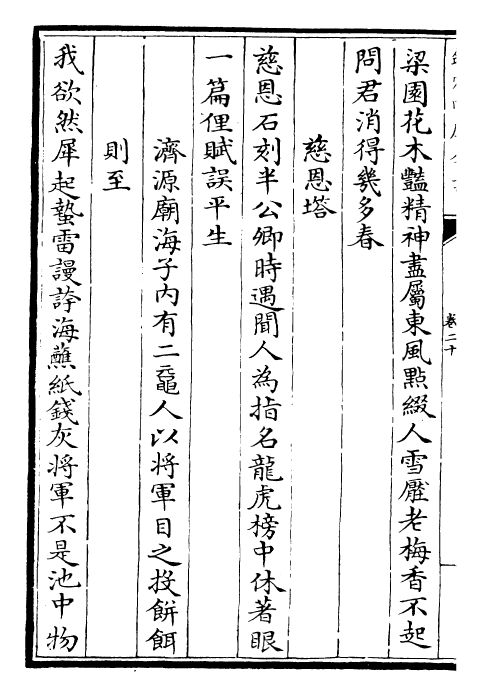 卷二十
梁園花木豔精神盡屬東風點綴人雪壓老梅香不起
問君消得幾多春
慈恩塔
慈恩石刻半公卿時遇聞人為指名龍虎榜中休著眼
一篇俚賦誤平生
濟源廟海子內有二黿人以將軍目之投餅餌
則至
我欲然犀起蟄雷謾誇海蘸紙錢灰將軍不是池中物